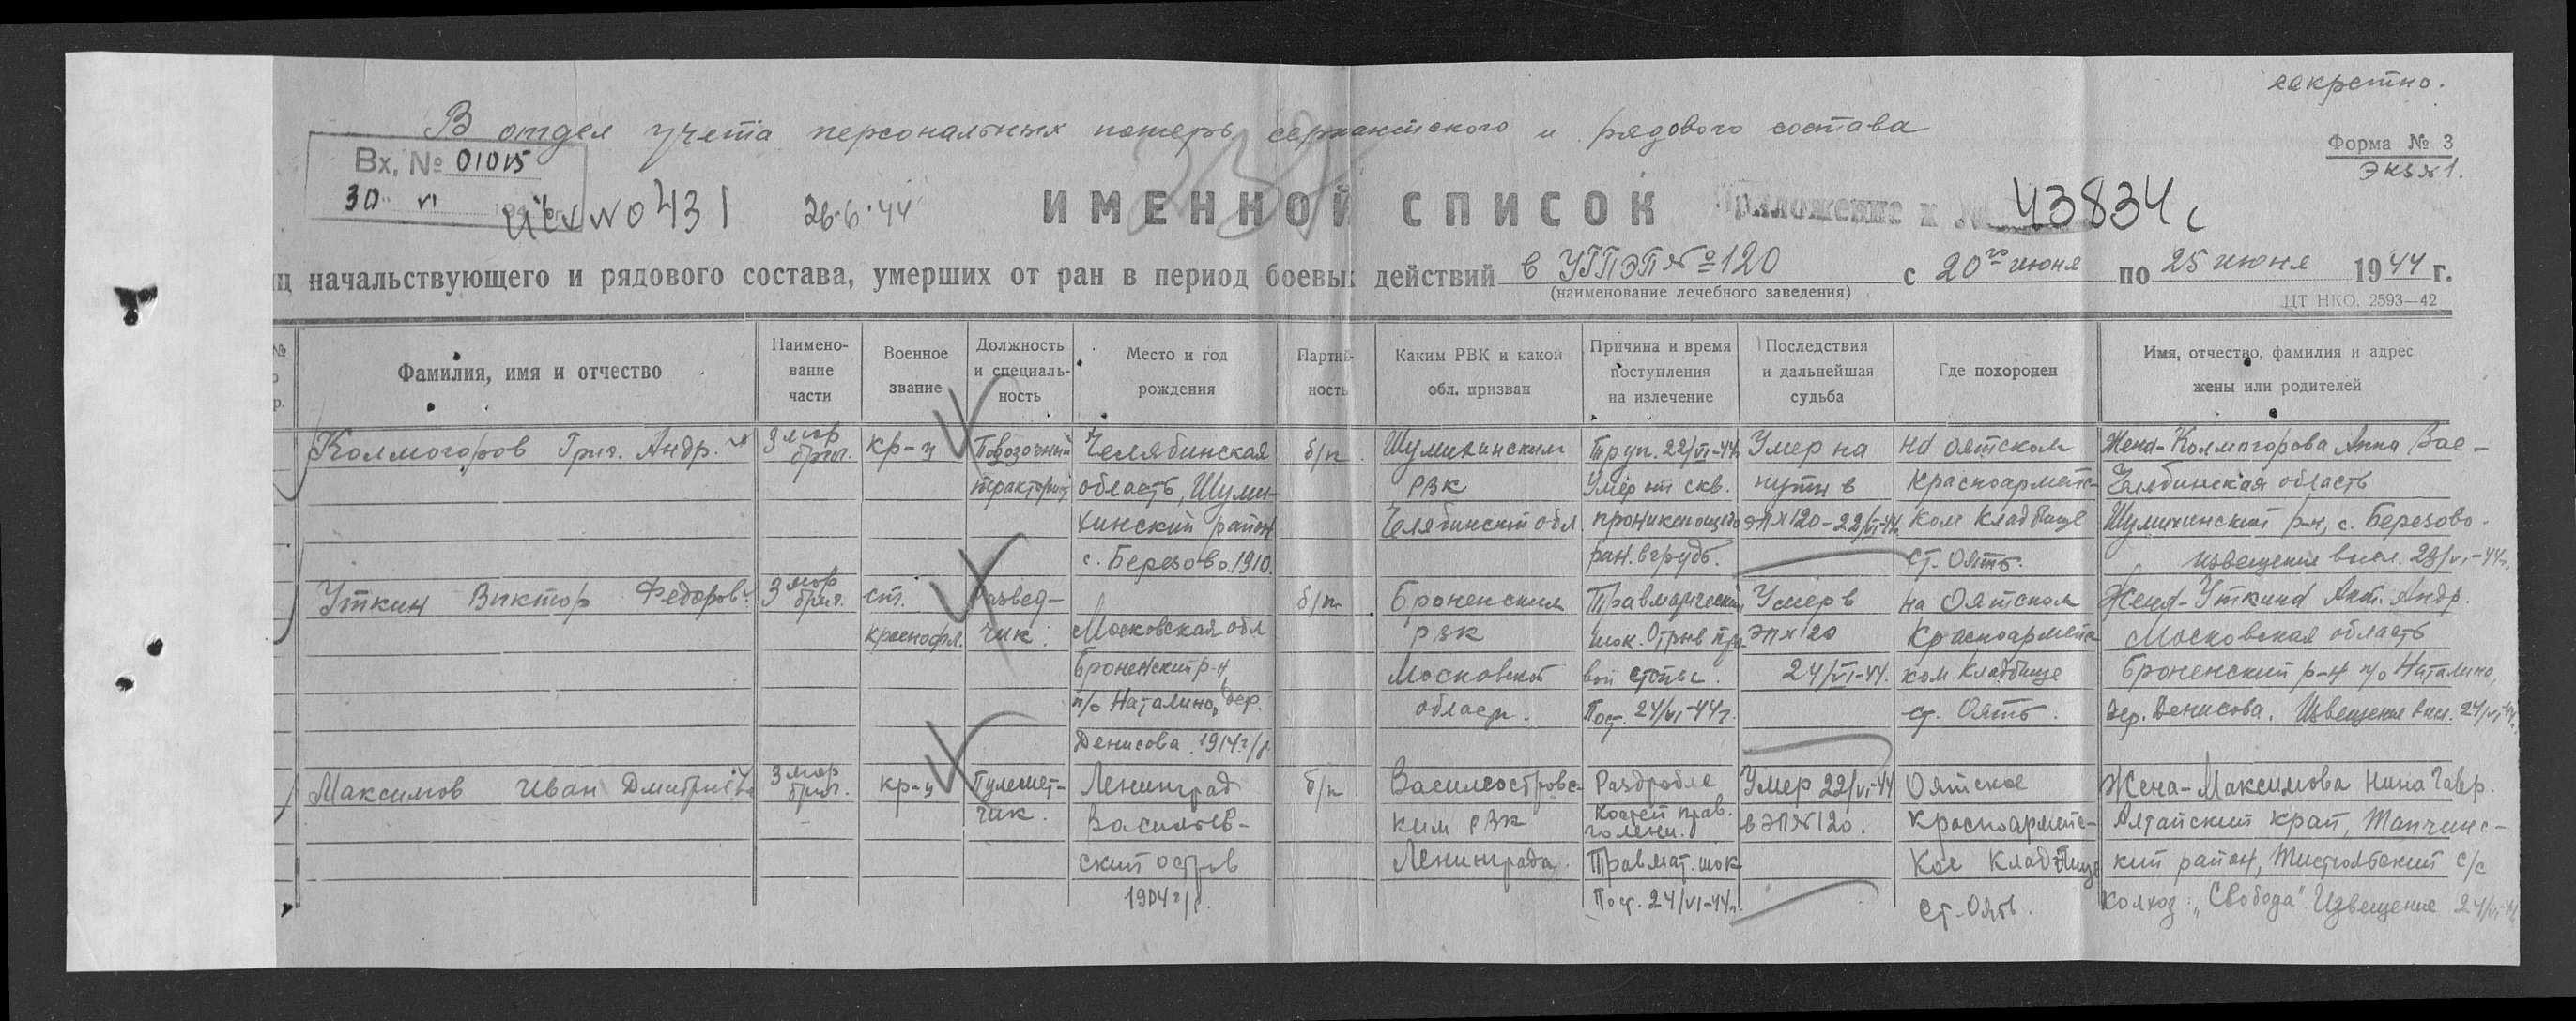 секретно.
В отдел учета персональных потерь сержантского и рядового состава
Форма № 3
Экз №1.
Вх. № 01015
30 VI
Исх № 0431
26.6.44
ИМЕННОЙ СПИСОК
Приложение к № 43834с
иц начальствующего и рядового состава, умерших от ран в период боевых действий в УГПЭП №120 с 20го июня по 25 июня 1944 г.
(наименование лечебного заведения)
ЦТ НКО. 2593—42
№
р.
Фамилия, имя и отчество
Наимено-
вание
части
Военное
звание
Должность
и специаль-
ность
Место и год
рождения
Партий-
ность
Каким РВК и какой
обл. призван
Причина и время
поступления
на излечение
Последствия
и дальнейшая
судьба
Где похоронен
Имя, отчество, фамилия и адрес
жены или родителей
Колмогоров Григ. Андр.
3 мор
бриг.
кр-ц
Повозочный
тракторист
Челябинская
область, Шуми-
хинский район
с. Березово. 1910.
б/п
Шумихинским
РВК
Челябинской обл
Труп. 22/VI-44г
Умер от скв.
проникающего
ран. в грудь.
Умер на
пути в
ЭП №120 - 22/VI-44г.
на Оятском
Красноармейс-
ком кладбище
ст. Оять.
Жена - Колмогорова Анна Вас-
Челябинская область
Шумихинский р-н, с. Березово.
извещение высл. 23/VI-44г.
Уткин Виктор Федоров.
3 мор
бриг.
ст.
краснофл.
Развед-
чик.
Московская обл
Броненский р-н,
п/о Наталино, дер.
Денисова. 1914г/р
б/п
Броненским
РВК
Московской
област.
Травматический
шок. Отрыв пра-
вой стопы.
Пост. 24/VI-44г.
Умер в
ЭП №120
24/VI-44.
на Оятском
Красноармейс
ком кладбище
ст. Оять.
Жена - Уткина Ант. Андр.
Московская область
Броненский р-н п/о Наталино,
дер. Денисова. Извещение выс. 24/VI-44.
Максимов Иван Дмитриев.
3 мор
бриг.
кр-ц
Пулемет-
чик.
Ленинград
Васильев-
ский остров
1904г/р.
б/п
Василеостровс-
ким РВК
Ленинграда.
Раздробле
костей прав.
голени.
Травмат. шок
Пост. 24/VI-44г.
Умер 22/VI-44
в ЭП №120.
Оятское
Красноармейс-
кое кладбище
ст. Оять.
Жена - Максимова Нина Гавр.
Алтайский край, Топчинс-
кий район, с/с
Колхоз „Свобода" Извещение 24/VI-44